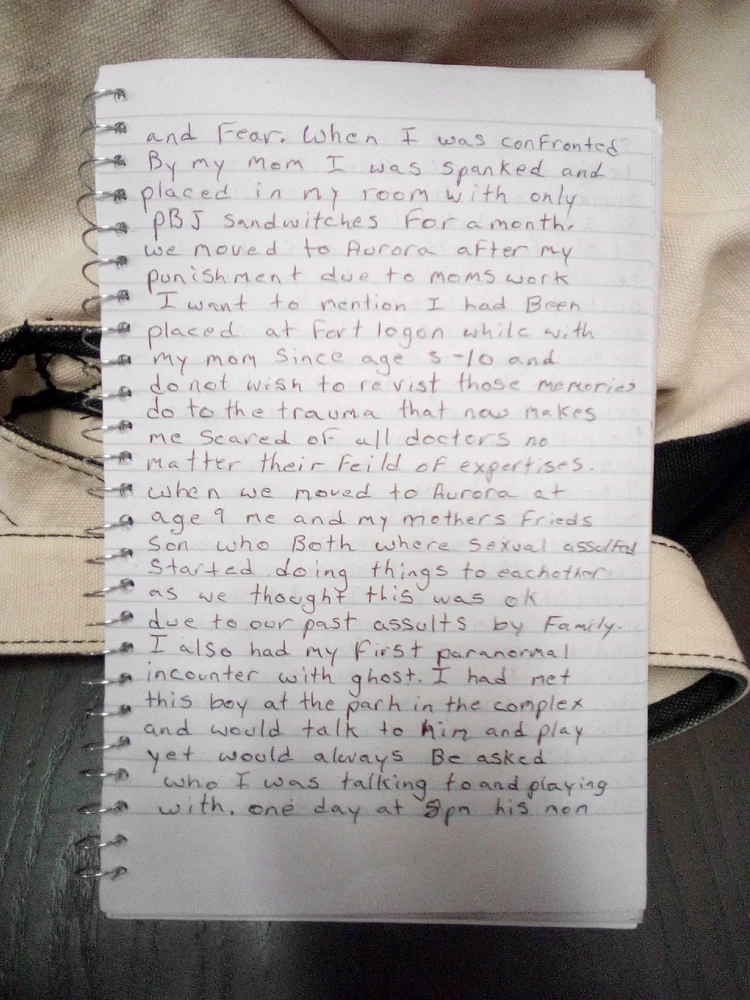 and Fear. When I was confronted
By my mom I was spanked and
placed in my room with only
PBJ sandwitches For a month.
we moved to Aurora after my
punishment due to moms work
I want to mention I had Been
placed at Fort logon while with
my mom since age 5-10 and
do not wish to revist those memories
do to the trauma that now makes
me scared of all doctors no
matter their Feild of expertises.
when we moved to Aurora at
age 9 me and my mothers Frieds
son who Both where sexual
started doing things to eachother
as we thought this was ok
due to our past assults by Family.
I also had my first paranormal
incounter with ghost. I had met
this boy at the park in the complex
and would talk to him and play
yet would always Be asked
who I was talking to and playing
with. one day at 8pm his mom